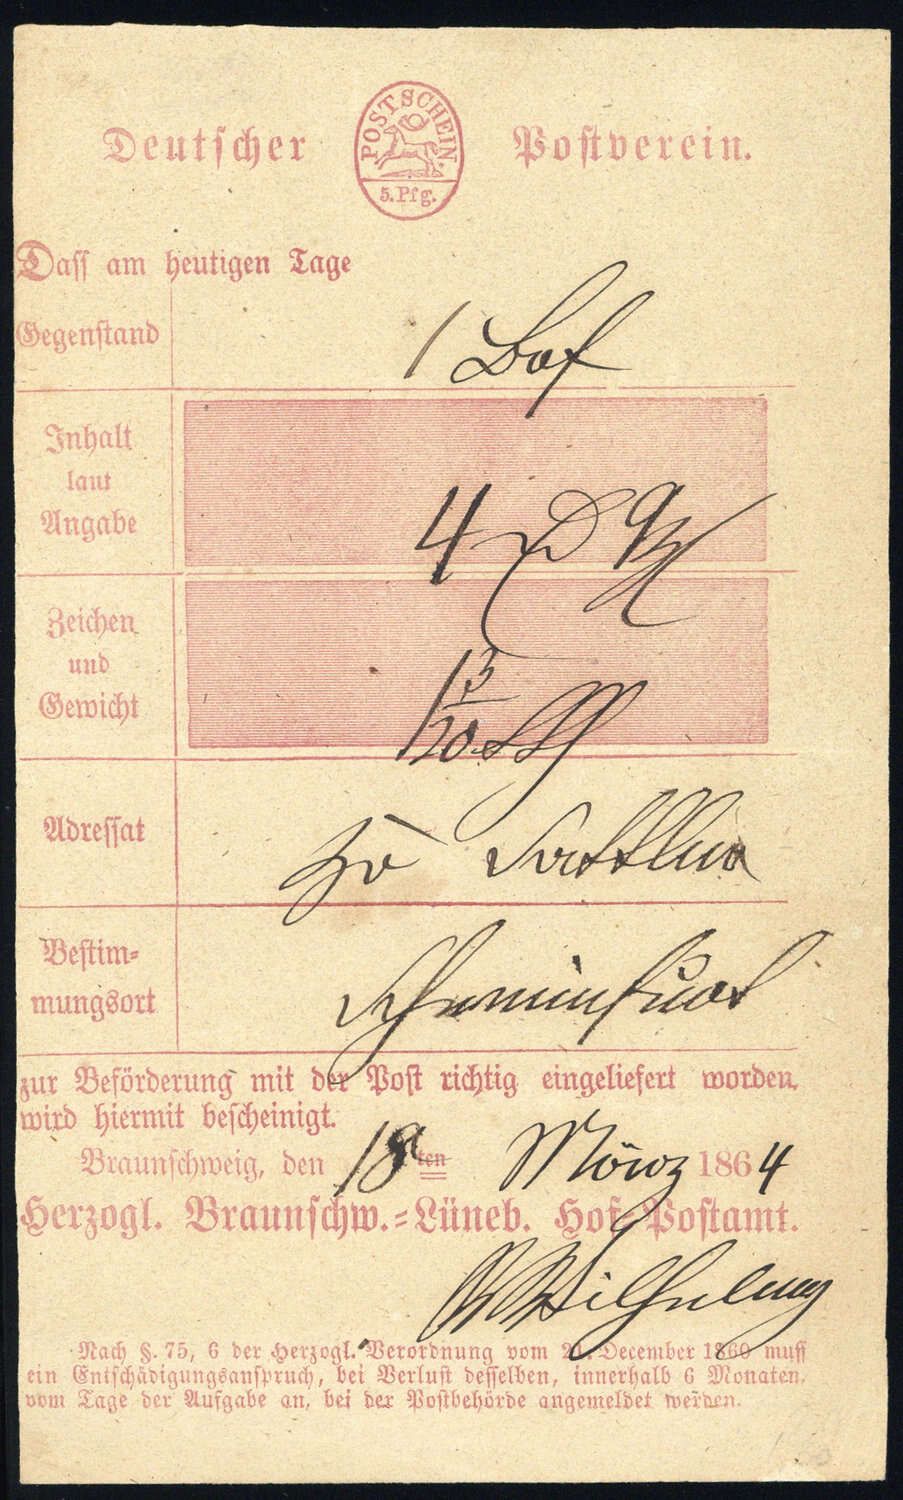 Deutscher POSTSCHEIN Postverein.
5. Pfg.
Dass am heutigen Tage
Gegenstand 1
Inhalt
laut
Angabe 4
Zeichen
und
Gewicht
Adressat
Bestim-
mungsort
zur Beförderung mit der Post richtig eingeliefert worden,
wird hiermit bescheinigt.
Braunschweig, den 18ten März 1864
Herzogl. Braunschw.-Lüneb. Hof-Postamt.
Nach §. 75, 6 der Herzogl. Verordnung vom 21. December 1860 muss
ein Entschädigungsanspruch, bei Verlust desselben, innerhalb 6 Monaten,
vom Tage der Aufgabe an, bei der Postbehörde angemeldet werden.